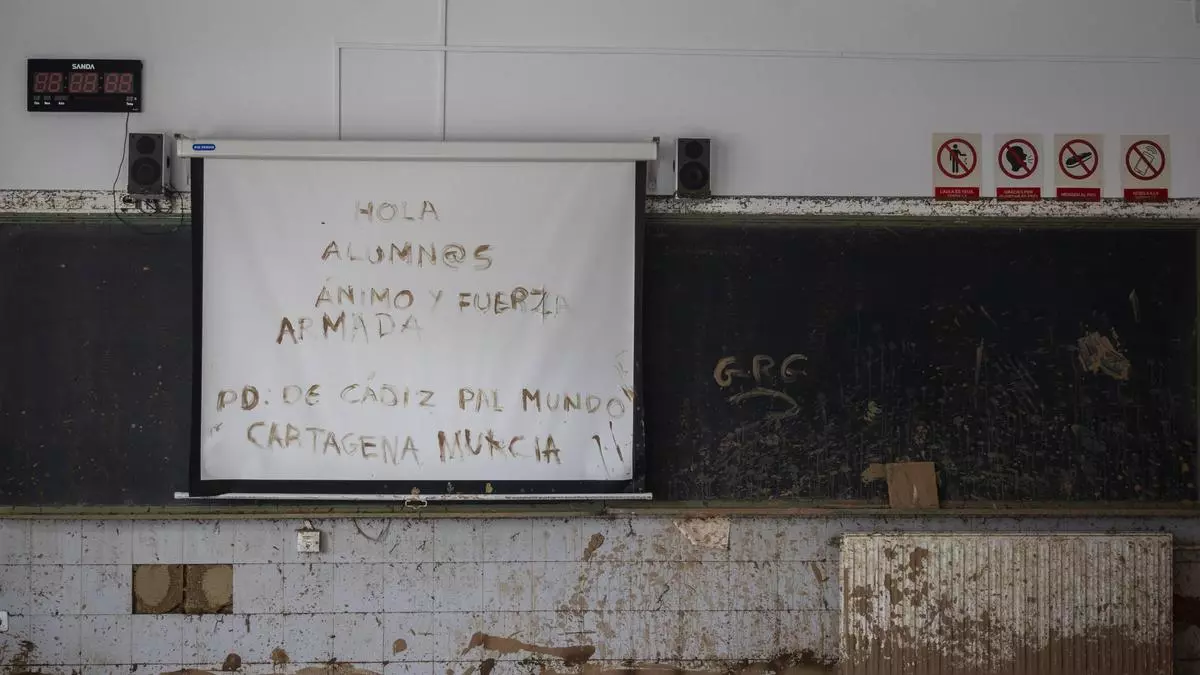 SANDA
88 88 88
HOLA
ALUMN@S
ÁNIMO Y FUERZA
ARMADA
PD: DE CÁDIZ PAL MUNDO
CARTAGENA MURCIA !!